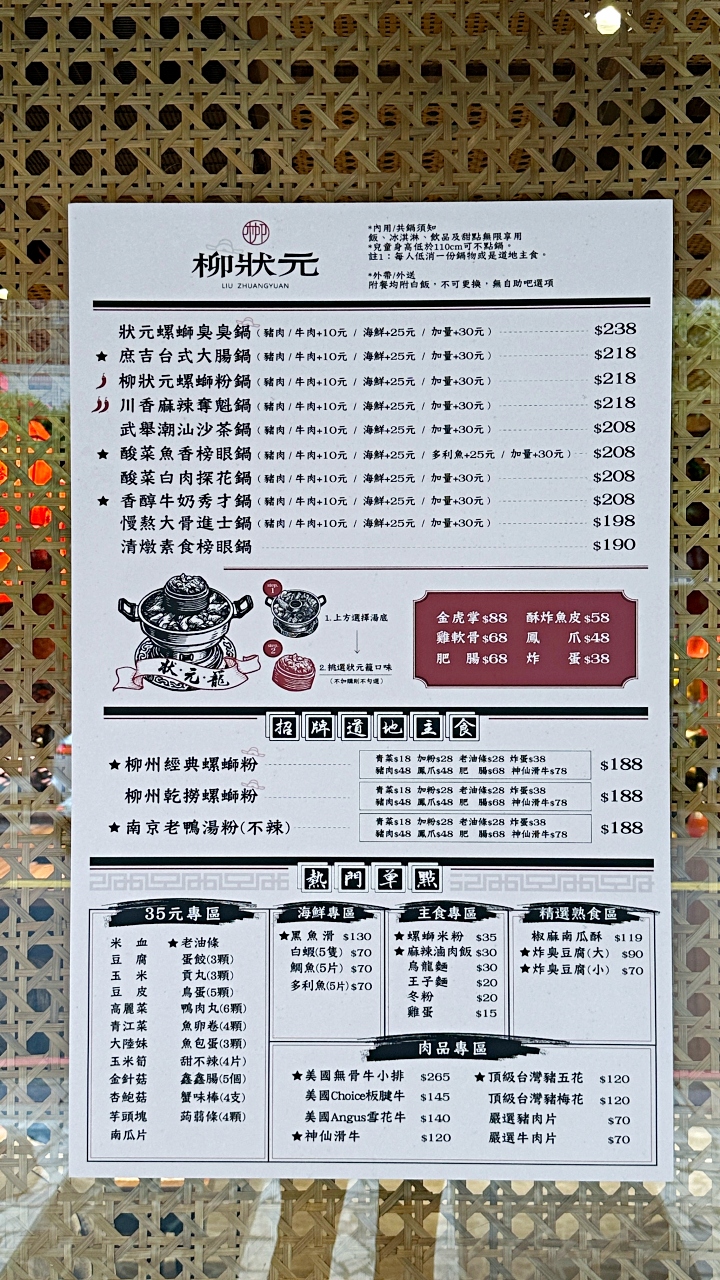 *內用/共鍋須知
飯、冰淇淋、飲品及甜點無限享用
*兒童身高低於110cm可不點鍋。
註1：每人低消一份鍋物或是道地主食。
*外帶/外送
附餐均附白飯，不可更換，無自助吧選項
柳狀元
LIU ZHUANGYUAN
狀元螺螄臭臭鍋（豬肉/牛肉+10元 / 海鮮+25元 / 加量+30元） $238
★ 庶吉台式大腸鍋（豬肉/牛肉+10元 / 海鮮+25元 / 加量+30元） $218
柳狀元螺螄粉鍋（豬肉/牛肉+10元 / 海鮮+25元 / 加量+30元） $218
川香麻辣奪魁鍋（豬肉/牛肉+10元 / 海鮮+25元 / 加量+30元） $218
武舉潮汕沙茶鍋（豬肉/牛肉+10元 / 海鮮+25元 / 加量+30元） $208
★ 酸菜魚香榜眼鍋（豬肉/牛肉+10元 / 海鮮+25元 / 多利魚+25元 / 加量+30元） $208
酸菜白肉探花鍋（豬肉/牛肉+10元 / 海鮮+25元 / 加量+30元） $208
★ 香醇牛奶秀才鍋（豬肉/牛肉+10元 / 海鮮+25元 / 加量+30元） $208
慢熬大骨進士鍋（豬肉/牛肉+10元 / 海鮮+25元 / 加量+30元） $198
清燉素食榜眼鍋 $190
狀·元·龍
step.
1
1.上方選擇湯底
step.
2
2.挑選狀元籠口味
（不加購則不勾選）
金虎掌$88 酥炸魚皮$58
雞軟骨$68 鳳 爪$48
肥 腸$68 炸 蛋$38
招牌道地主食
★柳州經典螺螄粉 青菜$18 加粉$28 老油條$28 炸蛋$38 $188
豬肉$48 鳳爪$48 肥 腸$68 神仙滑牛$78
柳州乾撈螺螄粉 青菜$18 加粉$28 老油條$28 炸蛋$38 $188
豬肉$48 鳳爪$48 肥 腸$68 神仙滑牛$78
★南京老鴨湯粉(不辣) 青菜$18 加粉$28 老油條$28 炸蛋$38 $188
豬肉$48 鳳爪$48 肥 腸$68 神仙滑牛$78
熱門單點
35元專區
米 血 ★老油條
豆 腐 蛋餃(3顆)
玉 米 貢丸(3顆)
豆 皮 鳥蛋(5顆)
高麗菜 鴨肉丸(6顆)
青江菜 魚卵卷(4顆)
大陸妹 魚包蛋(3顆)
玉米筍 甜不辣(4片)
金針菇 鑫鑫腸(5個)
杏鮑菇 蟹味棒(4支)
芋頭塊 蒟蒻條(4顆)
南瓜片
海鮮專區
★黑魚滑 $130
白蝦(5隻) $70
鯛魚(5片) $70
多利魚(5片) $70
主食專區
★螺螄米粉 $35
★麻辣滷肉飯 $30
烏龍麵 $30
王子麵 $20
冬粉 $20
雞蛋 $15
精選熟食區
椒麻南瓜酥 $119
★炸臭豆腐(大) $90
★炸臭豆腐(小) $70
肉品專區
★美國無骨牛小排 $265 ★頂級台灣豬五花 $120
美國Choice板腱牛 $145 頂級台灣豬梅花 $120
美國Angus雪花牛 $140 嚴選豬肉片 $70
★神仙滑牛 $120 嚴選牛肉片 $70